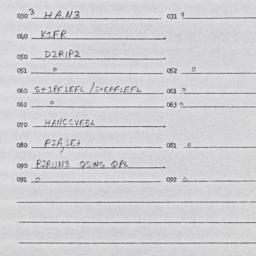 030 3 HAN3 031 0
040 K1FR
050 D2RIP2
051 0 052 0
060 S+IPFLEFL /S+EPFLEFL 061 0
062 0 063 0
070 HANCSVEEL
080 P2ASE+ 081 0
090 P2RUN3 QSNG QPL
091 0 092 0